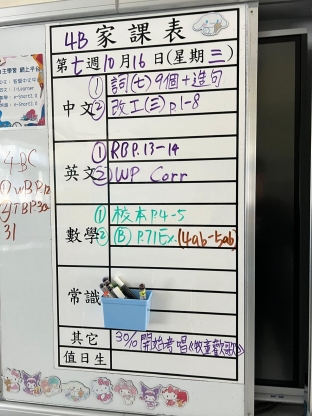 4B 家課表
第七週10月16日(星期三)
中文 ① 詞(七)9個+造句
② 改工(三) p.1-8
英文 ① RB P.13-14
② WP Corr
數學 ① 校本P.4-5
② (B) P.71 Ex. (4ab-5ab)
常識
其它 30% 開始考唱《牧童歡歌》
值日生
4BC
31